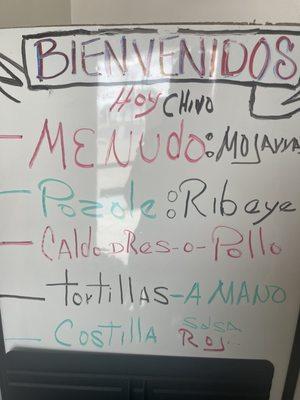 BIENVENIDOS
Hoy CHIVO
MENUDO: MOJARRA
Pozole: Ribeye
CALDO DRes-o-Pollo
TORTILLAS-A MANO
COSTILLA SALSA